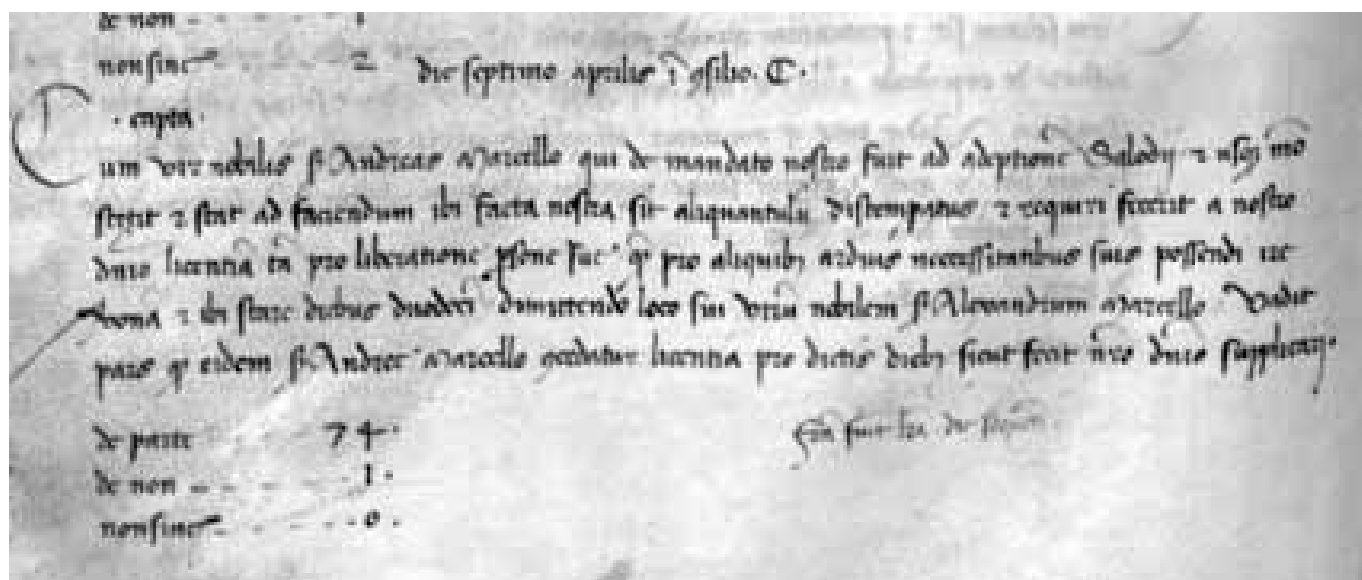 de non - - - - - 1
non sinc - - - 2 die septimo aprilis ī 9silio · C ·
· capta ·
Cum vir nobilis ſ Andreas Marcello qui de mandato nostro fuit ad adeptionē Salodij ⁊
stetit ⁊ stat ad faciendum ibi facta nostra sit aliquantulū distemperatus ⁊ requiri fecerit a nostro
dnio licentiā tā pro liberatione ꝑsone sue qꝫ pro aliquibꝫ arduis necessitatibus suis possendi
⁊ ibi stare diebus duodeci dimittendo loco sui virū nobilem ſ Alexandrum Marcello Vadit
pars ꝙ eidem ſ Andree Marcello 9cedatur licentia pro dictis diebꝫ sicut fecit nro dnio
de parte 74 ·
de non - - - - - 1 ·
non sinc - - - - - 0 ·